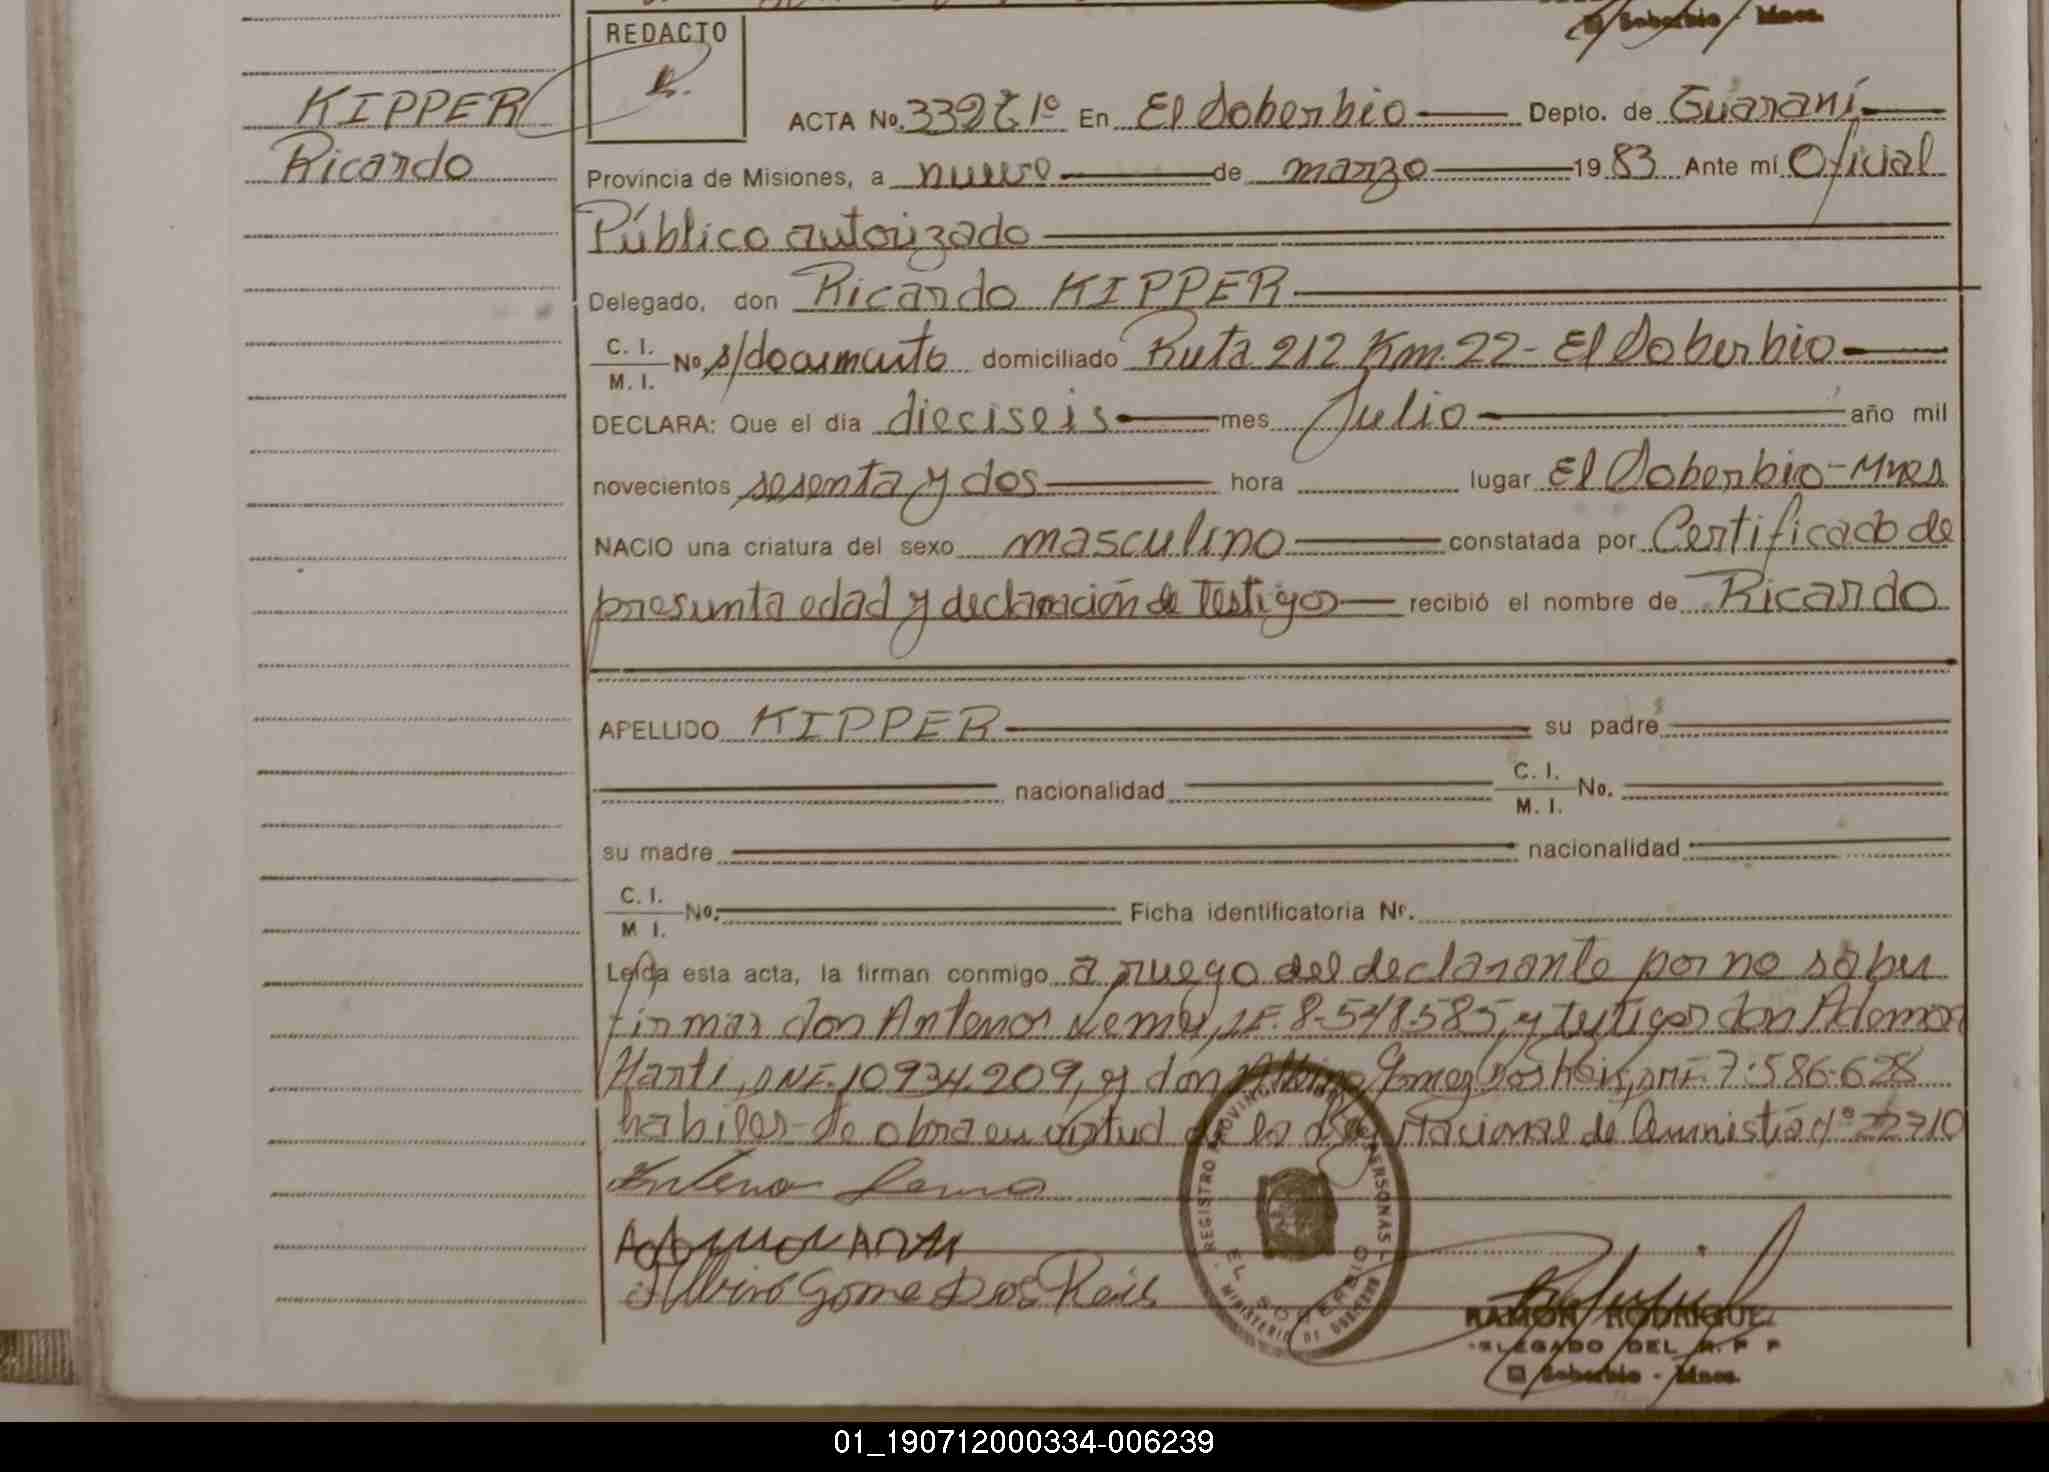 El Soberbio - Mnes.
REDACTO
KIPPER
Ricardo
ACTA No. 339 T 1º En El Soberbio Depto. de Guaraní
Provincia de Misiones, a nueve de marzo 19 83 Ante mí Oficial
Público autorizado
Delegado, don Ricardo KIPPER
C. I.
M. I. No s/documento domiciliado Ruta 212 Km. 22 - El Soberbio
DECLARA: Que el día dieciseis mes Julio año mil
novecientos sesenta y dos hora lugar El Soberbio - Mnes
NACIO una criatura del sexo masculino constatada por Certificado de
presunta edad y declaración de testigos recibió el nombre de Ricardo
APELLIDO KIPPER su padre
nacionalidad C. I.
M. I. No.
su madre nacionalidad
C. I.
M I. No. Ficha identificatoria Nr.
Leída esta acta, la firman conmigo a ruego del declarante por no saber
firmar don Antenor Lemes, y testigos don Ademar
DNI. 10934.209, y don Albino Gomez Dos Reis, DNI. 7.586.628
habiles - de obra en virtud de la Nacional de Amnistía Nº 22710
Albino Gome Dos Reis
REGISTRO PROVINCIAL DE LAS PERSONAS
EL SOBERBIO
MINISTERIO DE GOBIERNO
RAMON RODRIGUEZ
DELEGADO DEL R. P P
El Soberbio - Mnes.
01_190712000334-006239